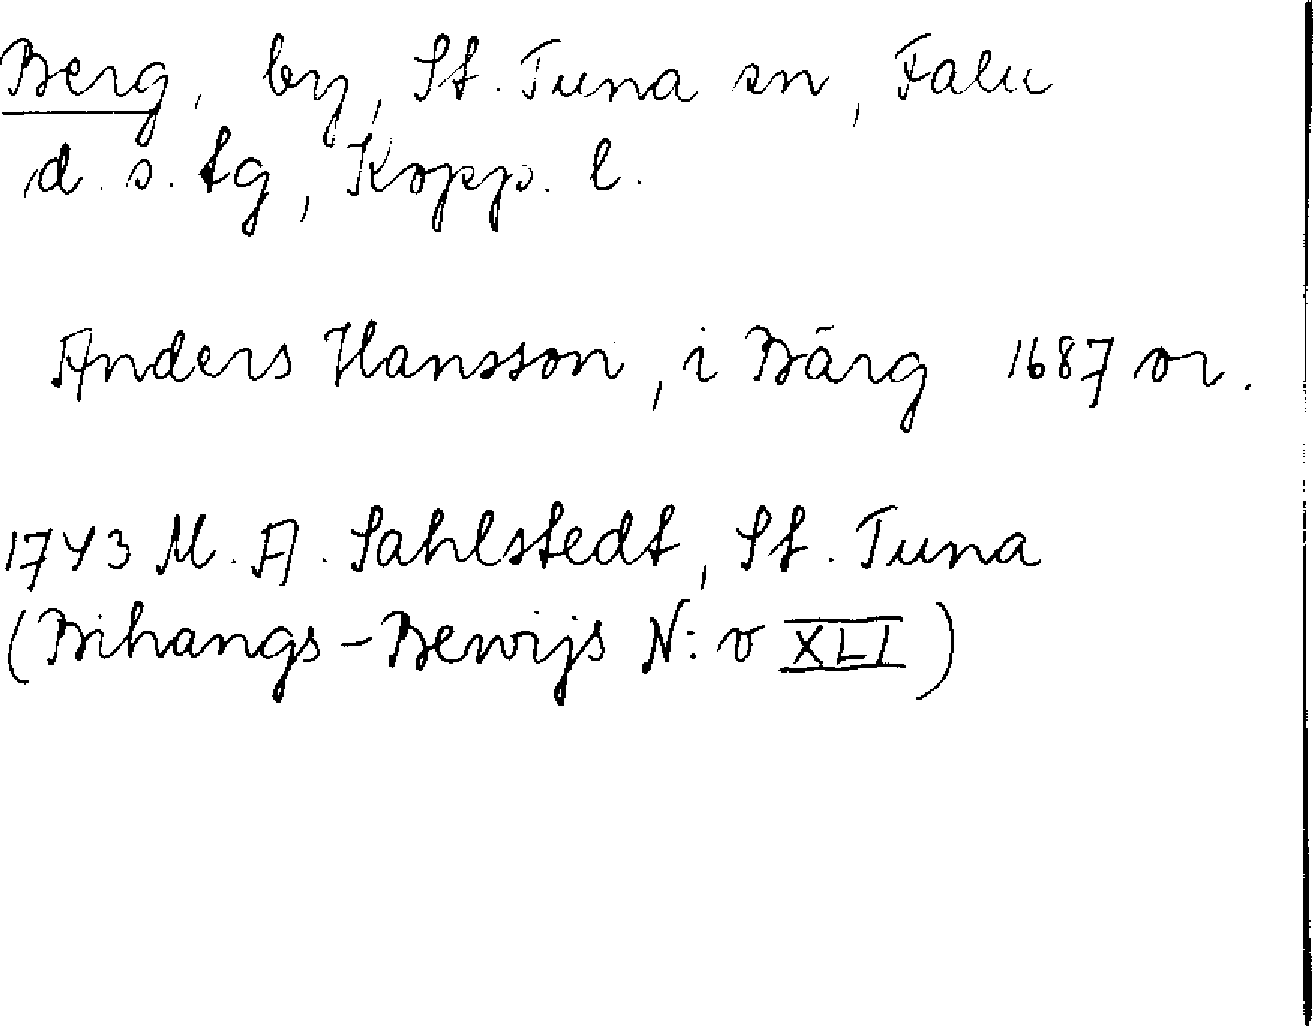 Berg, by, St. Tuna sn, Falu
d. s. tg, Kopp. l.
Anders Hansson, i Bärg 1687 or.
1743 M. A. Sahlstedt, St. Tuna
(Bihangs-Bewijs N:o XLI)